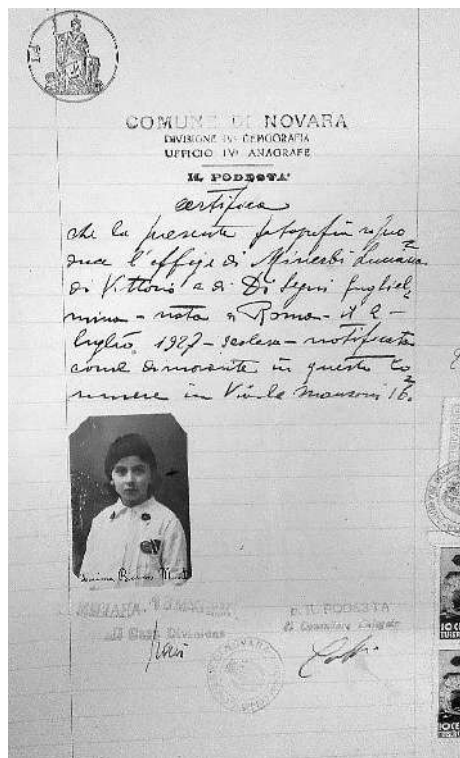 COMUNE DI NOVARA
DIVISIONE IVa DEMOGRAFIA
UFFICIO IVo ANAGRAFE
IL PODESTA'
certifica
che la presente fotografia ripro
duce l'effige di Minerbi Luciana
di Vittorio e di Di Segni Gugliel
mina - nata a Roma - il 2 -
luglio 1927 - scolara - notificata
come dimorante in questo Co
mune in Viale Manzoni 16.
NOVARA,
Il Capo Divisione
p. IL PODESTA'
Il Consultore Delegato
NOVARA
10 CE
10 CE